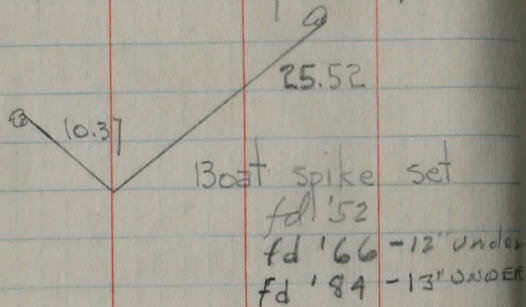 25.52
10.37
Boat spike set
fd '52
fd '66 - 12" under
fd '84 - 13" UNDER